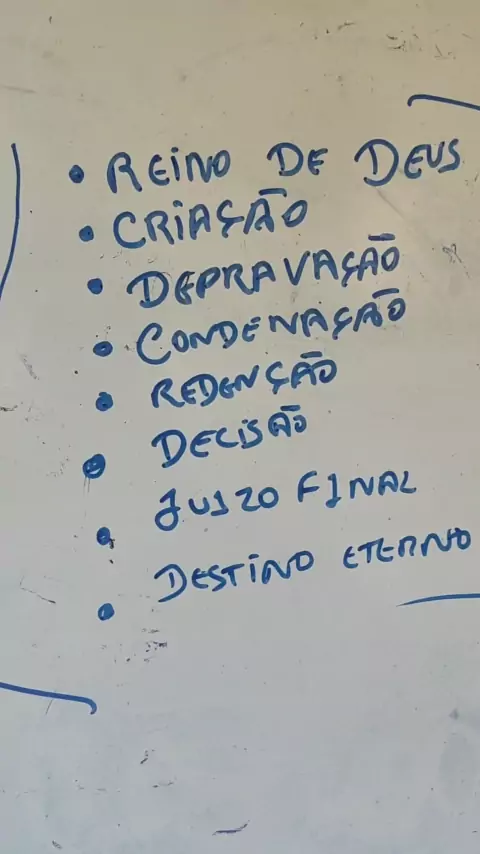 • REINO DE DEUS
• CRIAÇÃO
• DEPRAVAÇÃO
• CONDENAÇÃO
• REDENÇÃO
• DECISÃO
• JUIZO FINAL
• DESTINO ETERNO